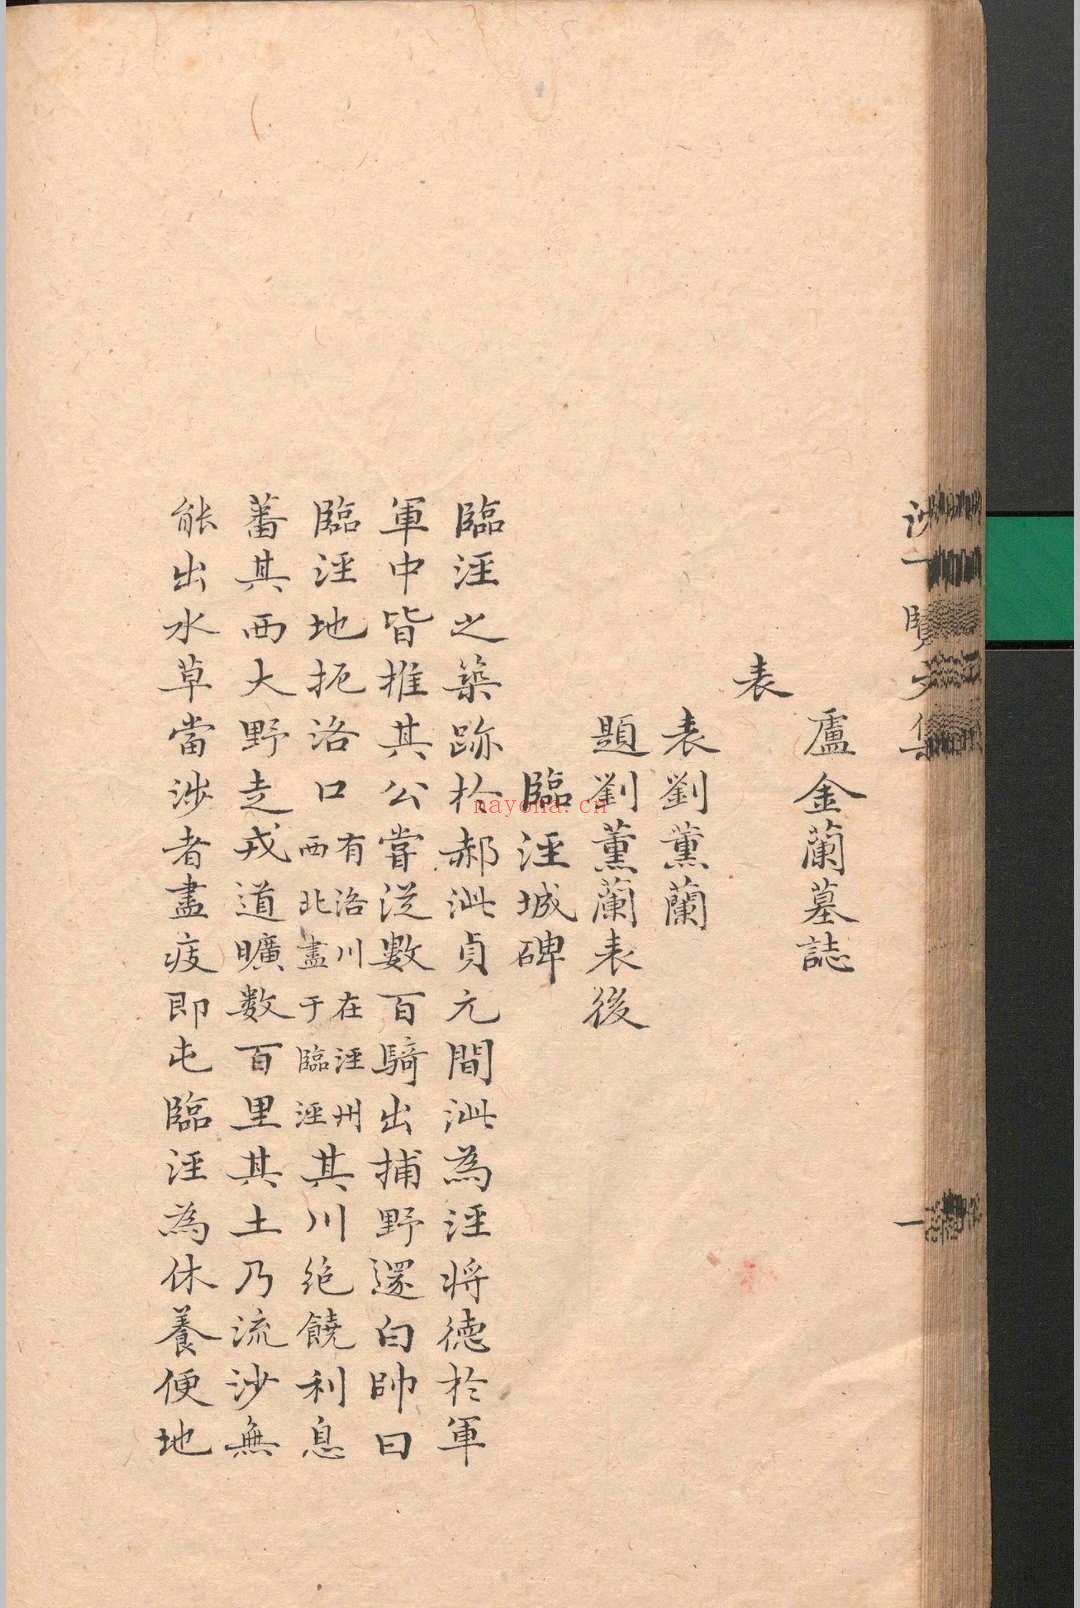 盧金蘭墓誌
表
表劉薰蘭
題劉薰蘭表後
臨涇城碑
臨涇之築跡於郝泚貞元間泚為涇將德於軍
軍中皆推其公嘗從數百騎出捕野還白帥曰
臨涇地扼洛口有洛川在涇州西北盡于臨涇其川絕饒利息
蕃其西大野走戎道曠數百里其土乃流沙無
能出水草當涉者盡疲即屯臨涇為休養便地
nayona.cn